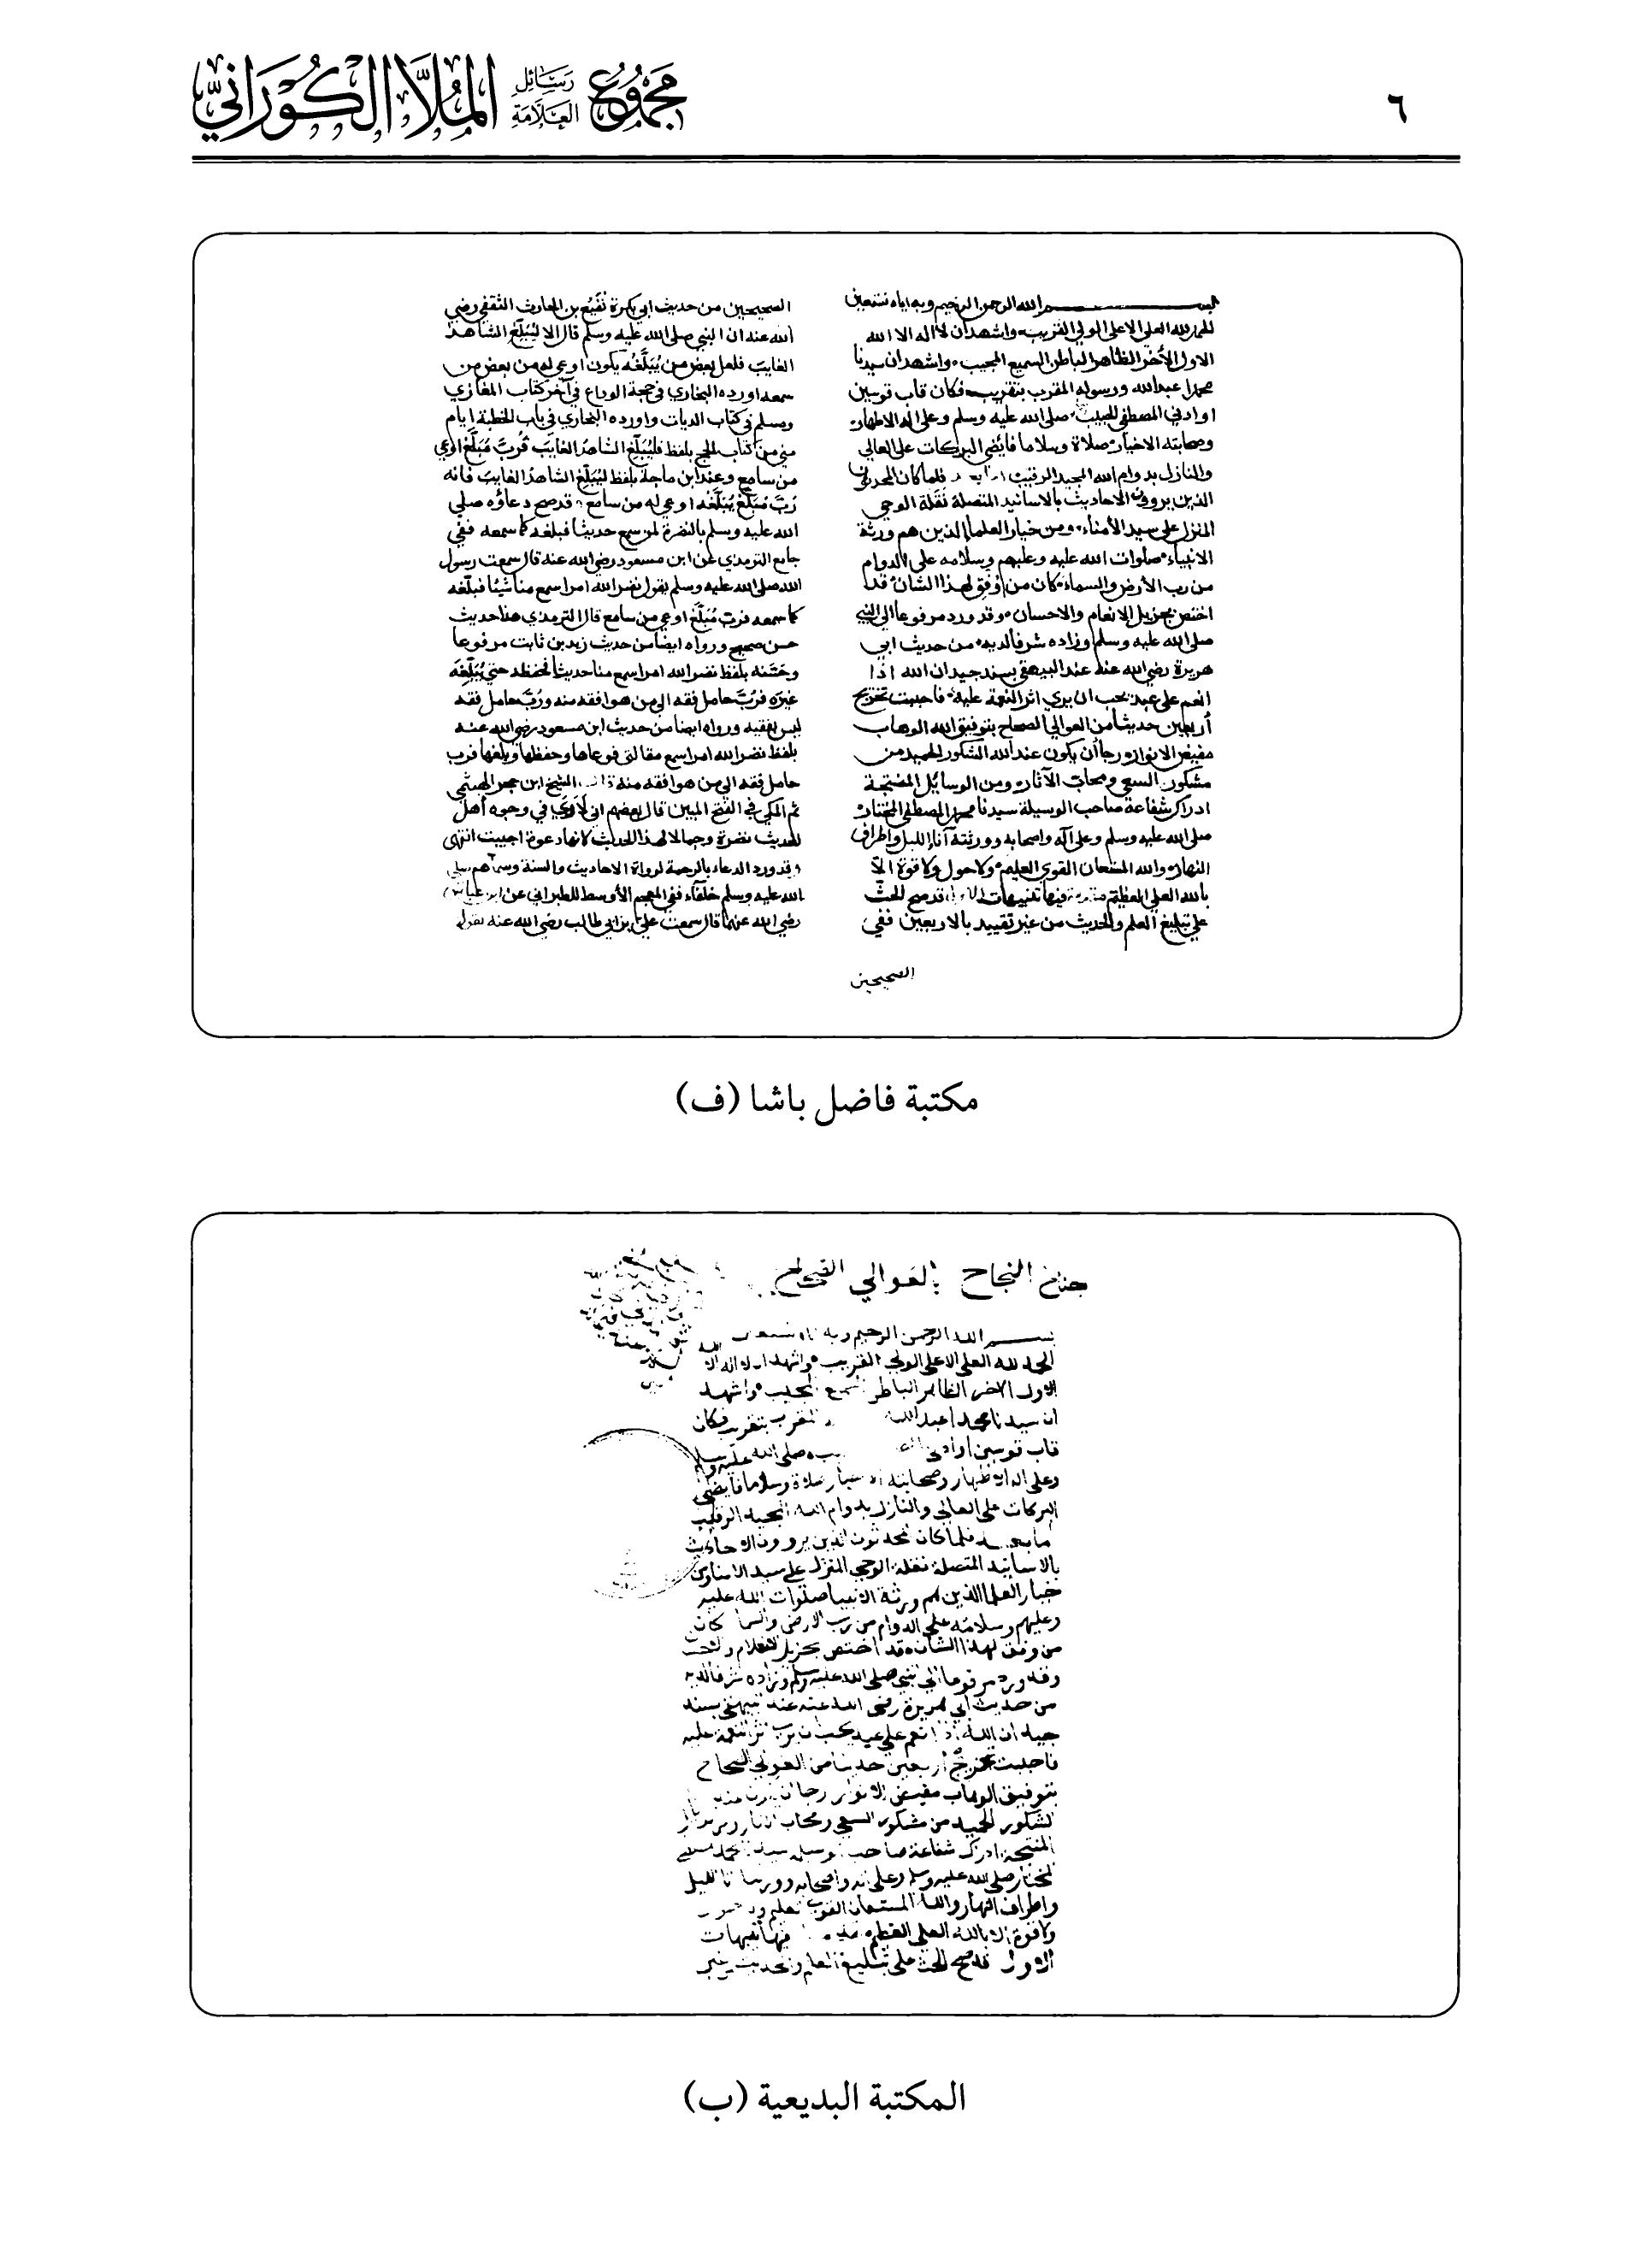 ٦
مجموع رسائل العلامة الملا الكوراني
بسم الله الرحمن الرحيم وبه اياه نستعين
الحمد لله العلي الاعلى الولي القريب واشهد ان لا اله الا الله
الاول الآخر الظاهر الباطن السميع المجيب واشهد ان سيدنا
محمدا عبد الله ورسوله المقرب بتقريب فكان قاب قوسين
او ادنى المصطفى الحبيب صلى الله عليه وسلم وعلى اله الاطهار
وصحابته الاخيار صلاة وسلاما فايضي البركات على العالي
والنازل بدوام الله المجيد الرقيب اما بعد فلما كان المحدثون
الذين يروون الاحاديث بالاسانيد المتصلة نقلة الوحي
المنزل على سيد الأمناء ومن خيار العلما الذين هم ورثة
الانبياء صلوات الله عليه وعليهم وسلامه على الدوام
من رب الأرض والسماء كان من وفق لهذا الشان قد
اختص بجزيل الانعام والاحسان وقد ورد مرفوعا الى النبي
صلى الله عليه وسلم وزاده شرفا لديه من حديث ابي
هريرة رضي الله عنه عند البيهقي بسند جيد ان الله اذا
انعم على عبد يحب ان يرى اثر النعمة عليه فاحببت تخريج
أربعين حديثا من العوالي الصحاح بتوفيق الله الوهاب
مفيض الانوار رجا أن يكون عند الله الشكور الحميد من
مشكور السعي ومحاب الآثار ومن الوسائل المنتجة
ادراك شفاعة صاحب الوسيلة سيدنا محمد المصطفى المختار
صلى الله عليه وسلم وعلى آله واصحابه وورثته آناء الليل واطراف
النهار والله المستعان القوي العليم ولا حول ولا قوة الا
بالله العلي العظيم مقدمة فيها تنبيهات الاول قد صح الحث
على تبليغ العلم والحديث من غير تقييد بالاربعين ففي
الصحيحين
الصحيحين من حديث ابي بكرة نفيع بن الحارث الثقفي رضي
الله عنه ان النبي صلى الله عليه وسلم قال الا ليبلغ الشاهد
الغايب فلعل بعض من يبلغه يكون اوعى له من بعض من
سمعه اورده البخاري في حجة الوداع في آخر كتاب المغازي
ومسلم في كتاب الديات واورده البخاري في باب الخطبة ايام
منى من كتاب الحج بلفظ فليبلغ الشاهد الغايب فرب مبلغ اوعى
من سامع وعند ابن ماجة بلفظ ليبلغ الشاهد الغايب فانه
رب مبلغ يبلغه اوعى له من سامع قد صح دعاؤه صلى
الله عليه وسلم بالنضرة لمن سمع حديثا فبلغه كما سمعه ففي
جامع الترمذي عن ابن مسعود رضي الله عنه قال سمعت رسول
الله صلى الله عليه وسلم يقول نضر الله امرا سمع منا شيئا فبلغه
كما سمعه فرب مبلغ اوعى من سامع قال الترمذي هذا حديث
حسن صحيح ورواه ايضا من حديث زيد بن ثابت مرفوعا
وحسنه بلفظ نضر الله امرا سمع منا حديثا فحفظه حتى يبلغه
غيره فرب حامل فقه الى من هو افقه منه ورب حامل فقه
ليس بفقيه ورواه ايضا من حديث ابن مسعود رضي الله عنه
بلفظ نضر الله امرا سمع مقالتي فوعاها وحفظها وبلغها فرب
حامل فقه الى من هو افقه منه قال الشيخ ابن حجر الهيتمي
ثم المكي في الفتح المبين قال بعضهم اني لأرى في وجوه أهل
الحديث نضرة وجمالا لهذا الحديث لانها دعوة اجيبت انتهى
وقد ورد الدعاء بالرحمة لرواة الاحاديث والسنة وسماهم صلى
الله عليه وسلم خلفاء ففي المعجم الأوسط للطبراني عن ابن عباس
رضي الله عنهما قال سمعت علي بن ابي طالب رضي الله عنه يقول
مكتبة فاضل باشا (ف)
جناح النجاح بالعوالي الصحاح
بسم الله الرحمن الرحيم وبه نستعين
الحمد لله العلي الاعلى الولي القريب واشهد ان لا اله الا الله
الاول الاخر الظاهر الباطن السميع المجيب واشهد
ان سيدنا محمدا عبد الله المقرب بتقريب فكان
قاب قوسين او ادنى صلى الله عليه وسلم
وعلى اله الاطهار وصحابته الاخيار صلاة وسلاما فايضي
البركات على العالي والنازل بدوام الله المجيد الرقيب
اما بعد فلما كان المحدثون الذين يروون الاحاديث
بالاسانيد المتصلة نقلة الوحي المنزل على سيد الامنا ومن
خيار العلما الذين هم ورثة الانبيا صلوات الله عليه
وعليهم وسلامه على الدوام من رب الارض والسما كان
من وفق لهذا الشان قد اختص بجزيل الانعام والاحسان
وقد ورد مرفوعا الى النبي صلى الله عليه وسلم وزاده شرفا لديه
من حديث ابي هريرة رضي الله عنه عند البيهقي بسند
جيد ان الله اذا انعم على عبد يحب ان يرى اثر النعمة عليه
فاحببت تخريج اربعين حديثا من العوالي الصحاح
بتوفيق الوهاب مفيض الانوار رجا ان يكون عند الله
الشكور الحميد من مشكور السعي ومحاب الاثار ومن الوسائل
المنتجة ادراك شفاعة صاحب الوسيلة سيدنا محمد المصطفى
المختار صلى الله عليه وسلم وعلى اله واصحابه وورثته انا الليل
واطراف النهار والله المستعان القوي العليم ولا حول
ولا قوة الا بالله العلي العظيم مقدمة فيها تنبيهات
الاول قد صح الحث على تبليغ العلم والحديث من غير
المكتبة البديعية (ب)